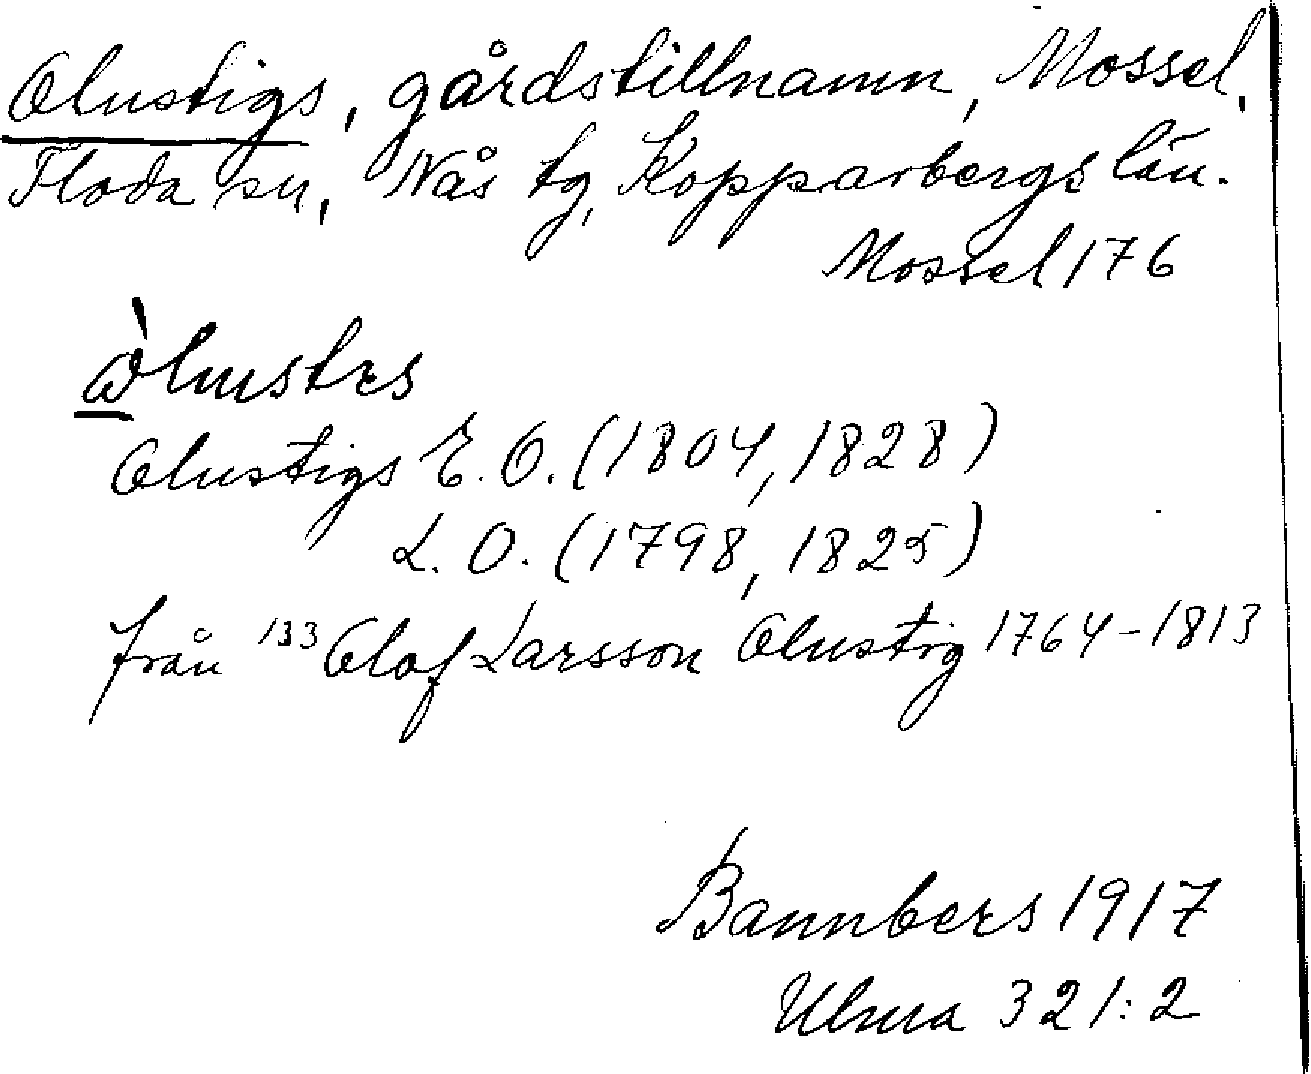 Olustigs, gårdstillnamn, Mossel,
Floda sn, Nås tg, Kopparbergs län.
Mossel 176
Olustigs E. O. (1804, 1828)
L. O. (1798, 1825)
från 133 Olof Larsson Olustig 1764-1813
Bannbers 1917
Ulma 321:2